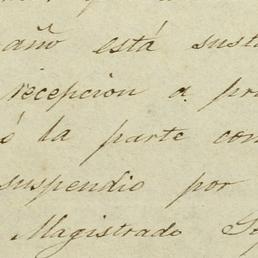 año está sust
recepcion a pr
la parte con
suspendio por
Magistrado